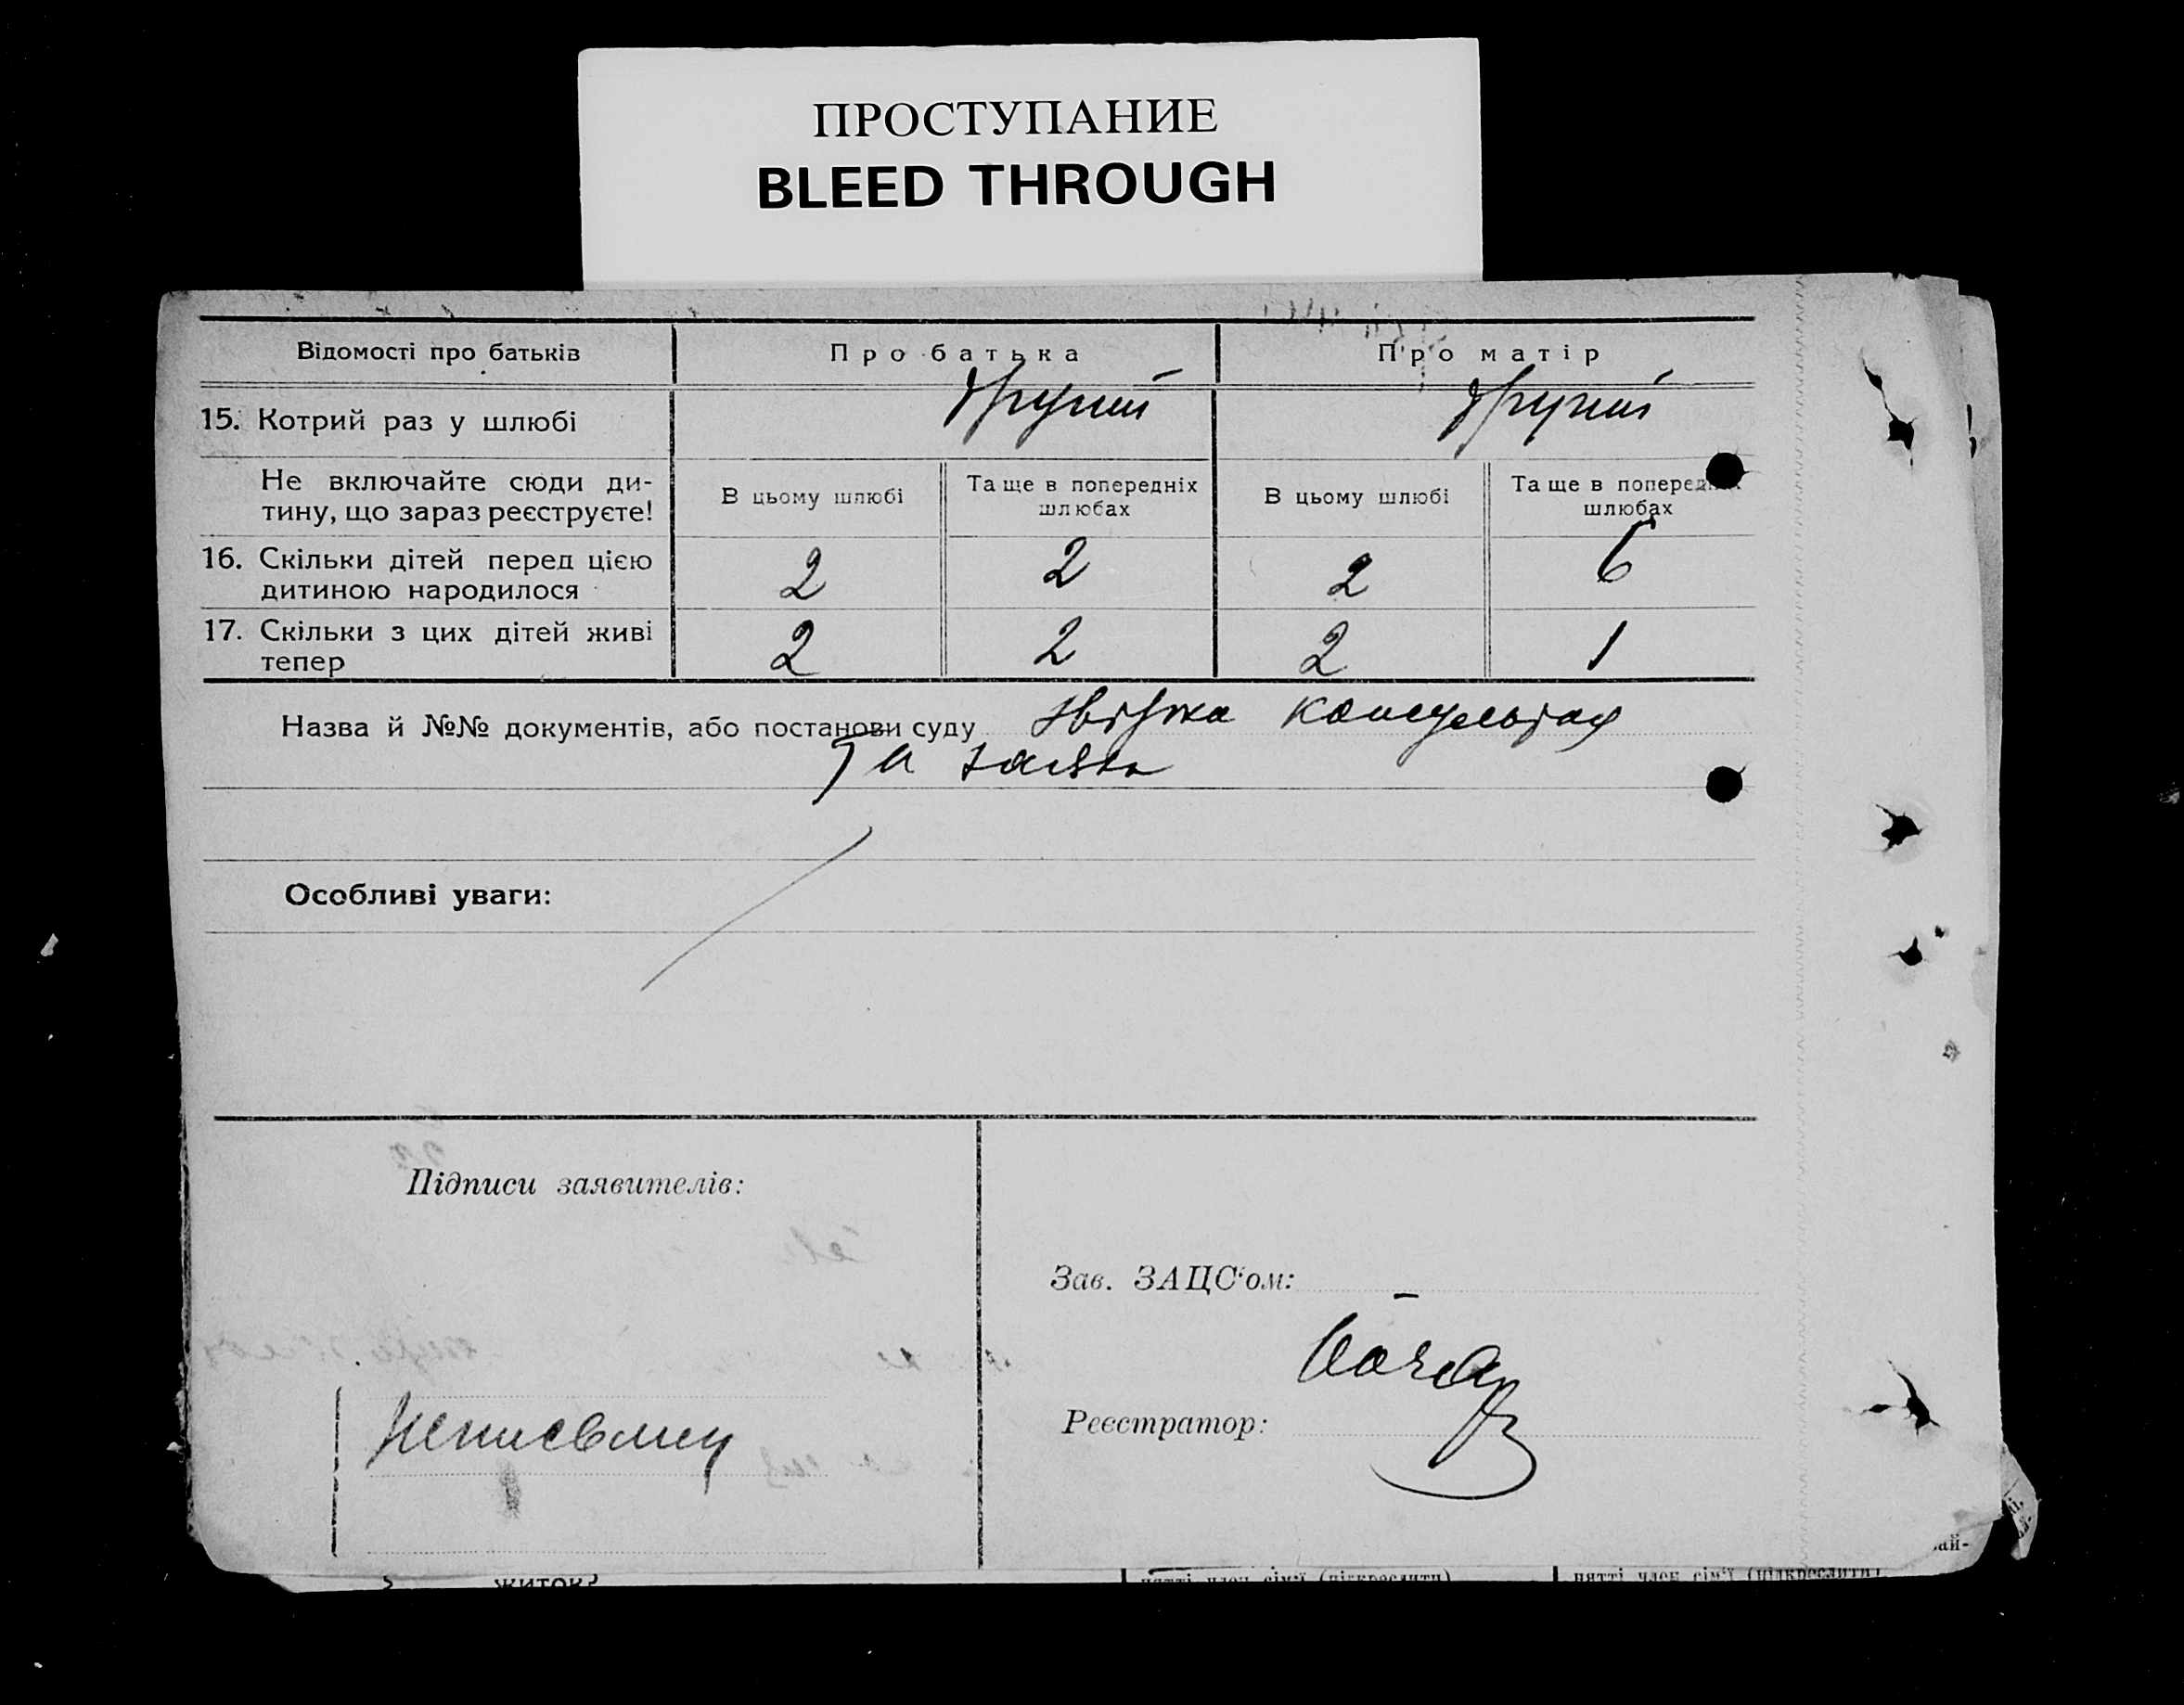 ПРОСТУПАНИЕ
BLEED THROUGH
Відомості про батьків
Про батька
Про матір
15. Котрий раз у шлюбі
другий
другий
Не включайте сюди ди-
тину, що зараз реєструєте!
В цьому шлюбі
Та ще в попередніх
шлюбах
В цьому шлюбі
Та ще в попередніх
шлюбах
16. Скільки дітей перед цією
дитиною народилося
2
2
2
6
17. Скільки з цих дітей живі
тепер
2
2
2
1
Назва й №№ документів, або постанови суду
та заява
Особливі уваги:
Підписи заявителів:
Зав. ЗАЦС'ом:
Реєстратор:
житок?
нятті член сім'ї (підкреслити)
нятті член сім'ї (підкреслити)